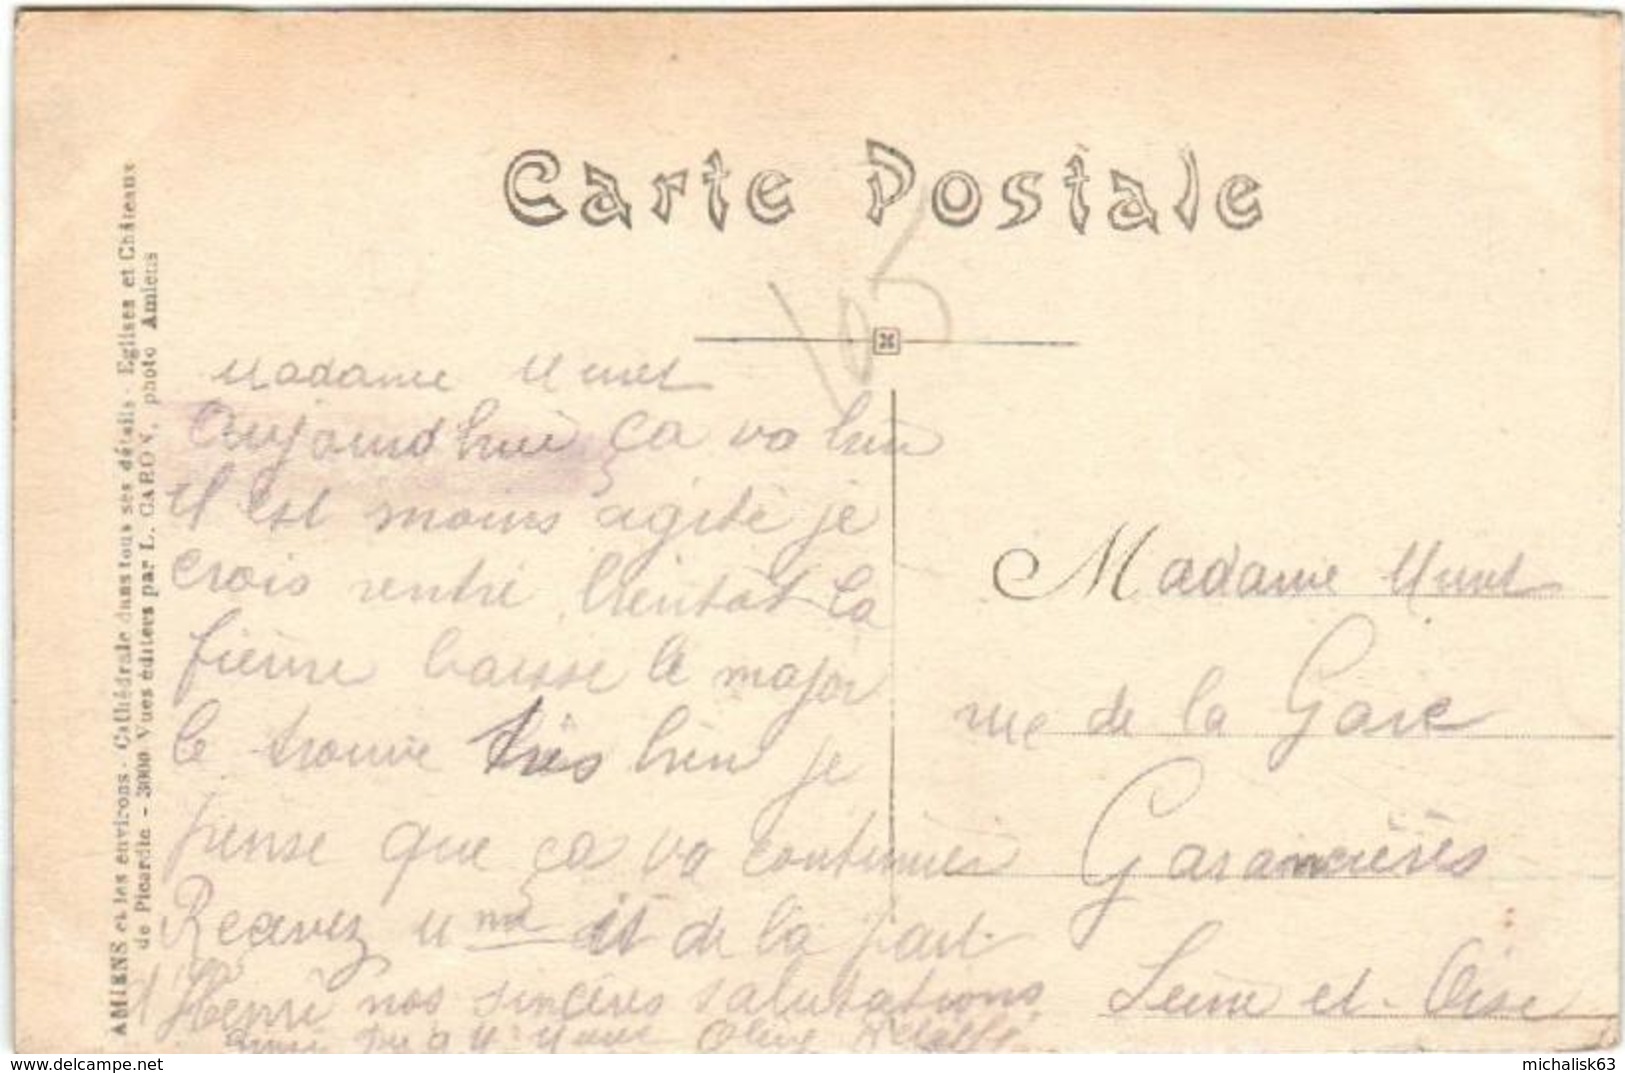 Carte Postale
105
AMIENS et les environs - Cathédrale dans tous ses détails - Eglises et Châteaux
de Picardie - 3000 Vues éditées par L. CARON, photo Amiens
Madame
Aujourd hui ça va bien
il est moins agité je
crois rentré bientôt la
fièvre baisse le major
le trouve très bien je
pense que ça va continuer
Recevez de la part
d'Henri nos sincères salutations
Olive
Madame
rue de la Gare
Garancières
Seine et Oise
delcampe.net
michalisk63